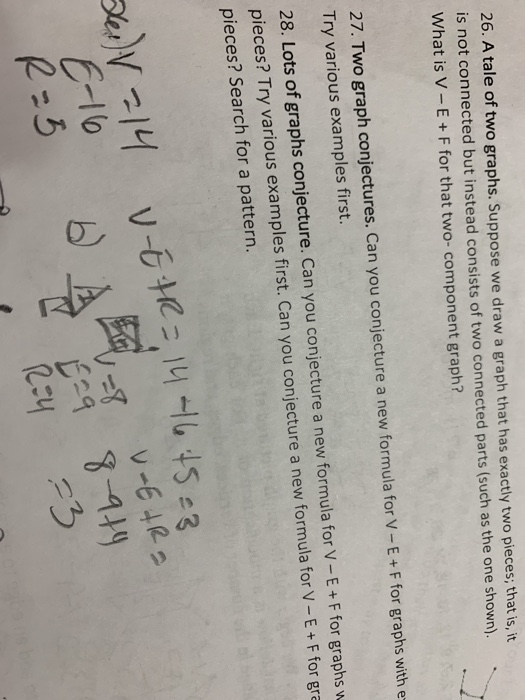 26. A tale of two graphs. Suppose we draw a graph that has exactly two pieces; that is, it
is not connected but instead consists of two connected parts (such as the one shown).
What is V – E + F for that two- component graph?
27. Two graph conjectures. Can you conjecture a new formula for V – E + F for graphs with
Try various examples first.
28. Lots of graphs conjecture. Can you conjecture a new formula for V – E + F for graphs
pieces? Try various examples first. Can you conjecture a new formula for V – E + F for
pieces? Search for a pattern.
V = 14
E-16
R = 5
V-E+R = 14-16+5=3
b)
V=8
E=9
R=4
V-E+R=
8-9+4
=3